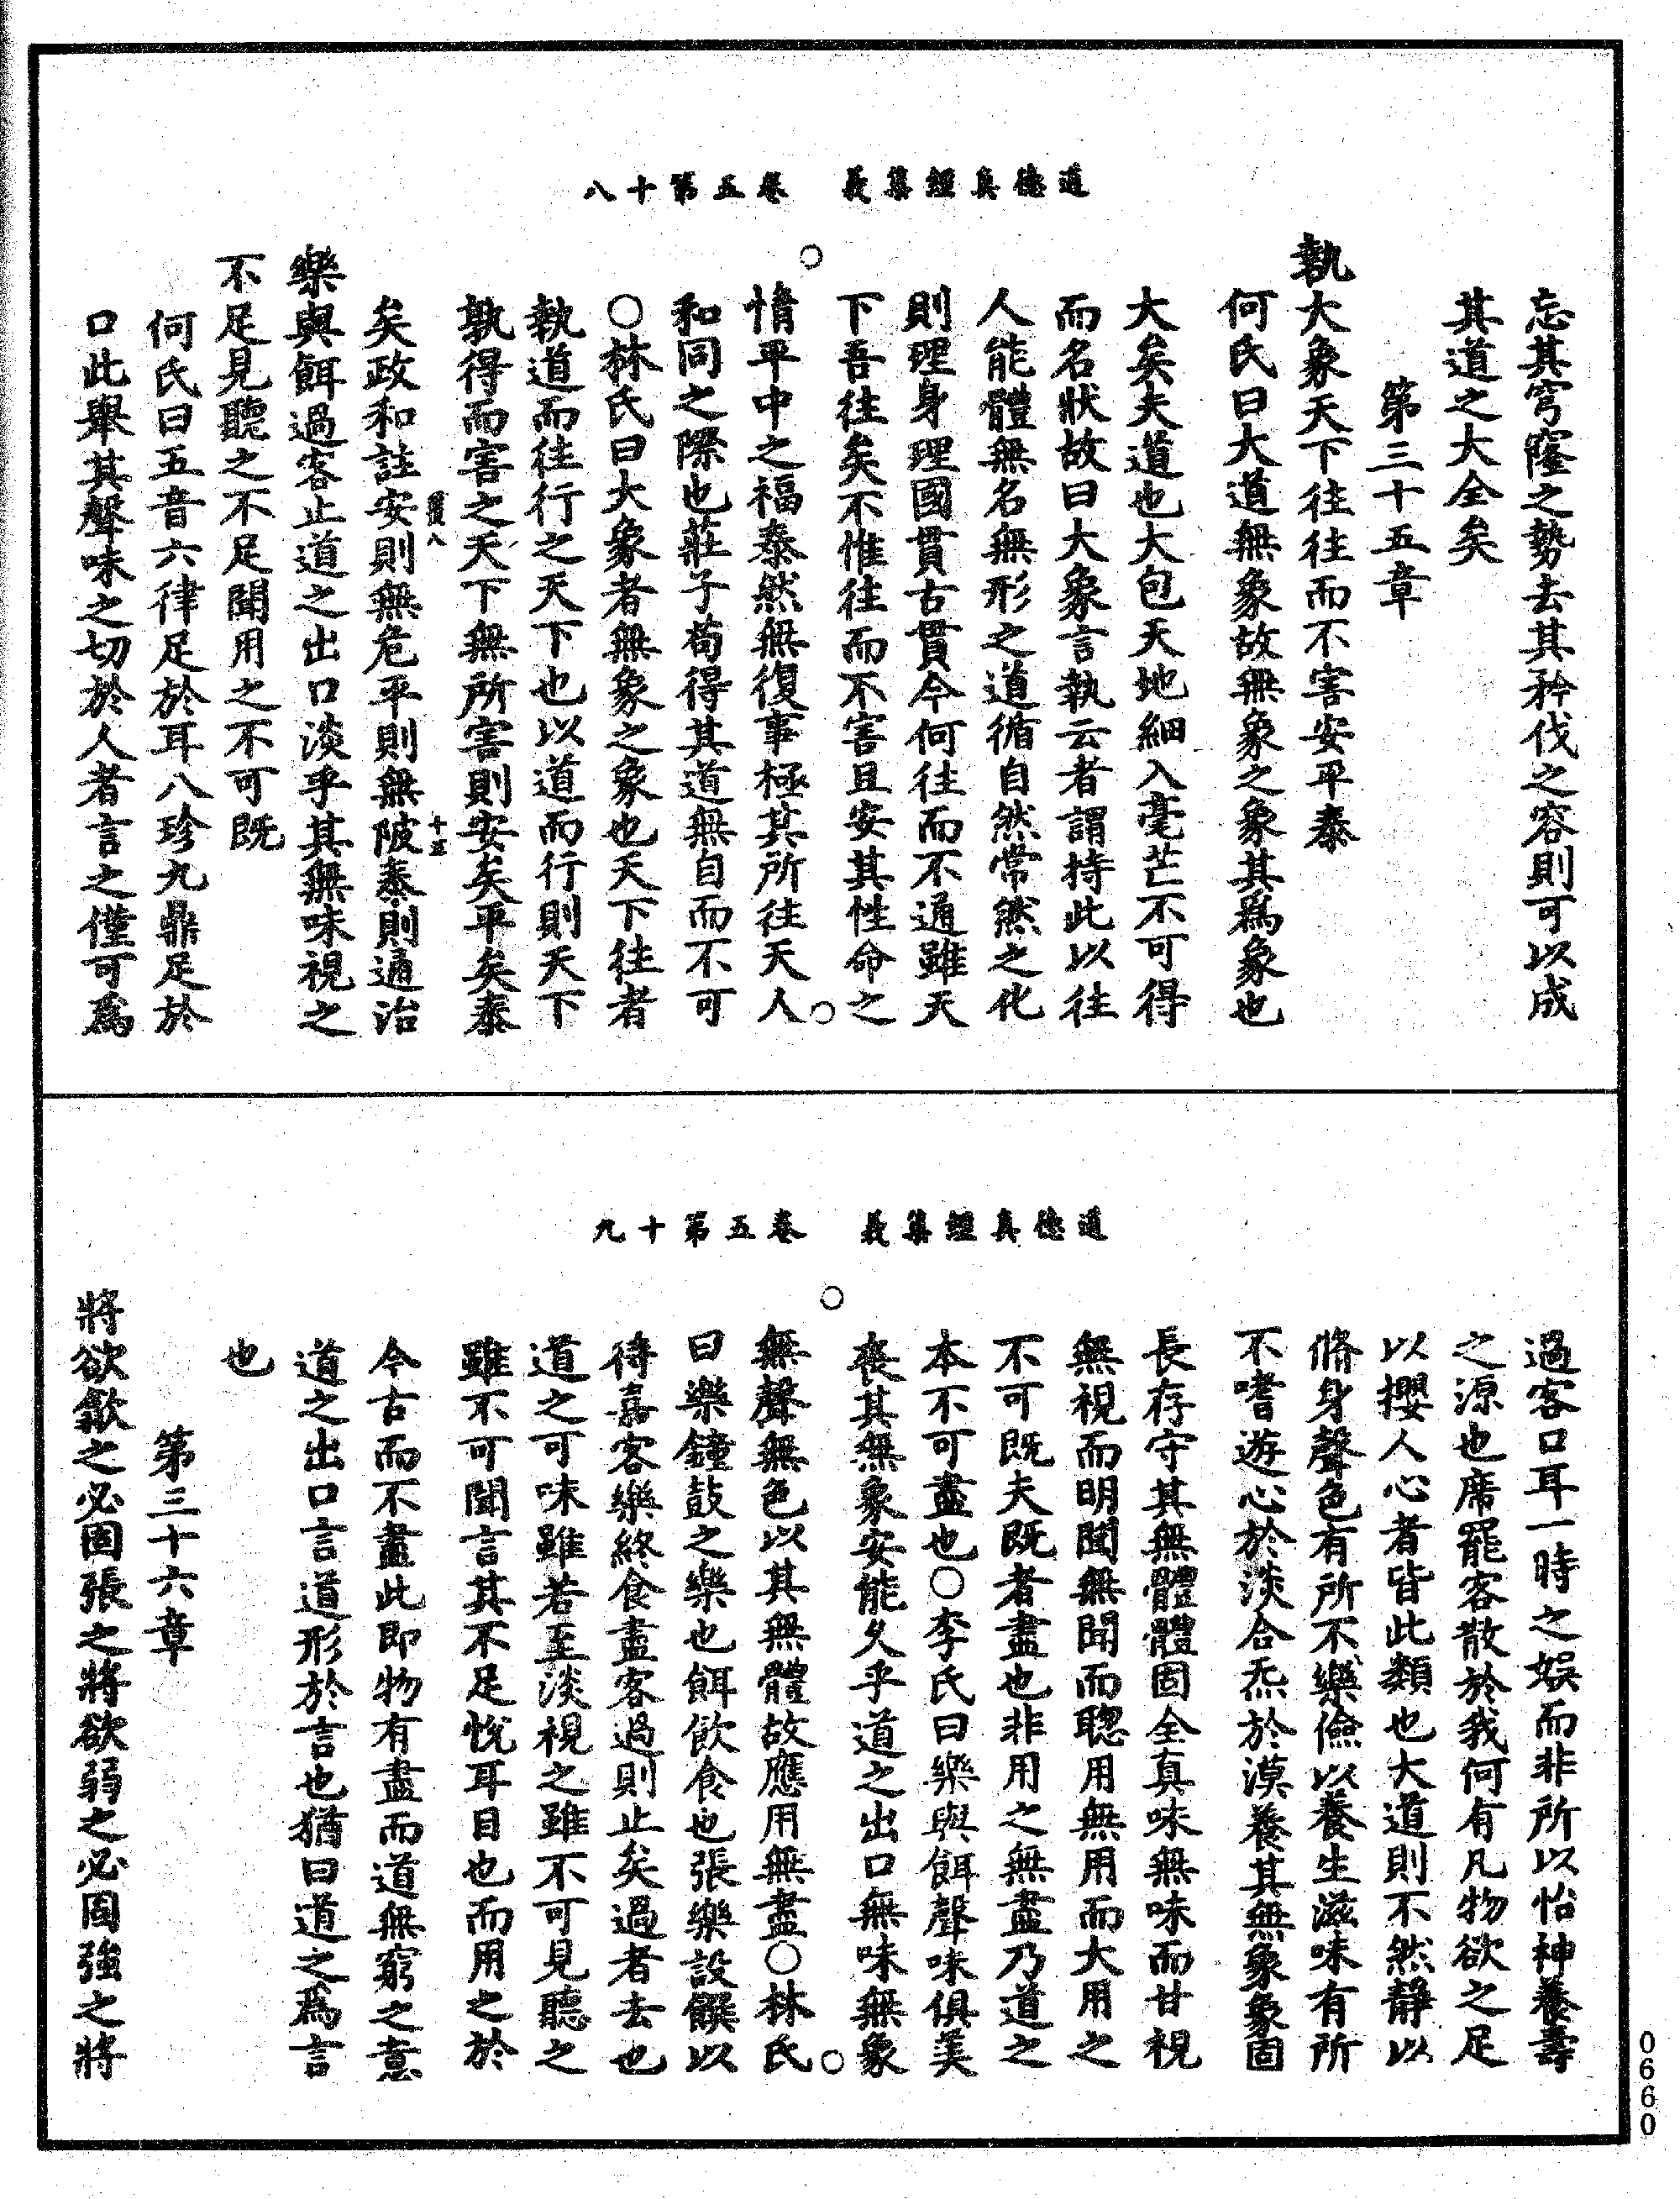 道德真經集義 卷五第十八
忘其穹窿之勢去其矜伐之容則可以成
其道之大全矣
第三十五章
執大象天下往往而不害安平泰
何氏曰大道無象故無象之象其為象也
大矣夫道也大包天地細入毫芒不可得
而名狀故曰大象言執云者謂持此以往
人能體無名無形之道循自然常然之化
則理身理國貫古貫今何往而不通雖天
下吾往矣不惟往而不害且安其性命之
情平中之福泰然無復事極其所往天人
和同之際也莊子苟得其道無自而不可
○林氏曰大象者無象之象也天下往者
執道而往行之天下也以道而行則天下
孰得而害之天下無所害則安矣平矣泰
矣政和註安則無危平則無陂泰則通治
樂與餌過客止道之出口淡乎其無味視之
不足見聽之不足聞用之不可既
何氏曰五音六律足於耳八珍九鼎足於
口此舉其聲味之切於人者言之僅可為
道德真經集義 卷五第十九
過客口耳一時之娛而非所以怡神養壽
之源也席罷客散於我何有凡物欲之足
以攖人心者皆此類也大道則不然靜以
脩身聲色有所不樂儉以養生滋味有所
不嗜遊心於淡合炁於漠養其無象象固
長存守其無體體固全真味無味而甘視
無視而明聞無聞而聰用無用而大用之
不可既夫既者盡也非用之無盡乃道之
本不可盡也○李氏曰樂與餌聲味俱美
喪其無象安能久乎道之出口無味無象
無聲無色以其無體故應用無盡○林氏
曰樂鐘鼓之樂也餌飲食也張樂設饌以
待嘉客樂終食盡客過則止矣過者去也
道之可味雖若至淡視之雖不可見聽之
雖不可聞言其不足悅耳目也而用之於
今古而不盡此即物有盡而道無窮之意
道之出口言道形於言也猶曰道之為言
也
第三十六章
將欲歙之必固張之將欲弱之必固強之將
0660